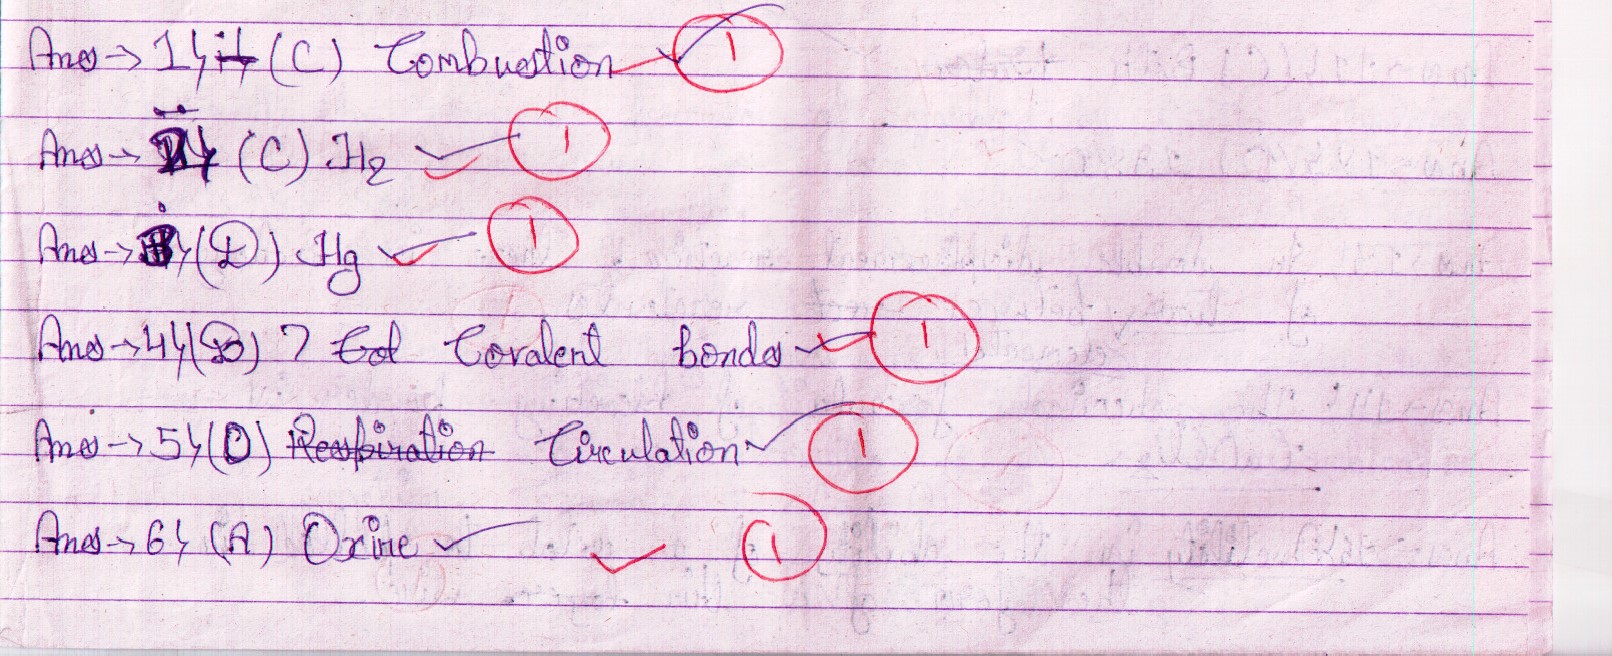 Ans → 1) (C) Combustion 1
Ans → 2) (C) H2 1
Ans → 3) (D) Hg 1
Ans → 4) (B) 7 Covalent bonds 1
Ans → 5) (D) Respiration Circulation 1
Ans → 6) (A) 1